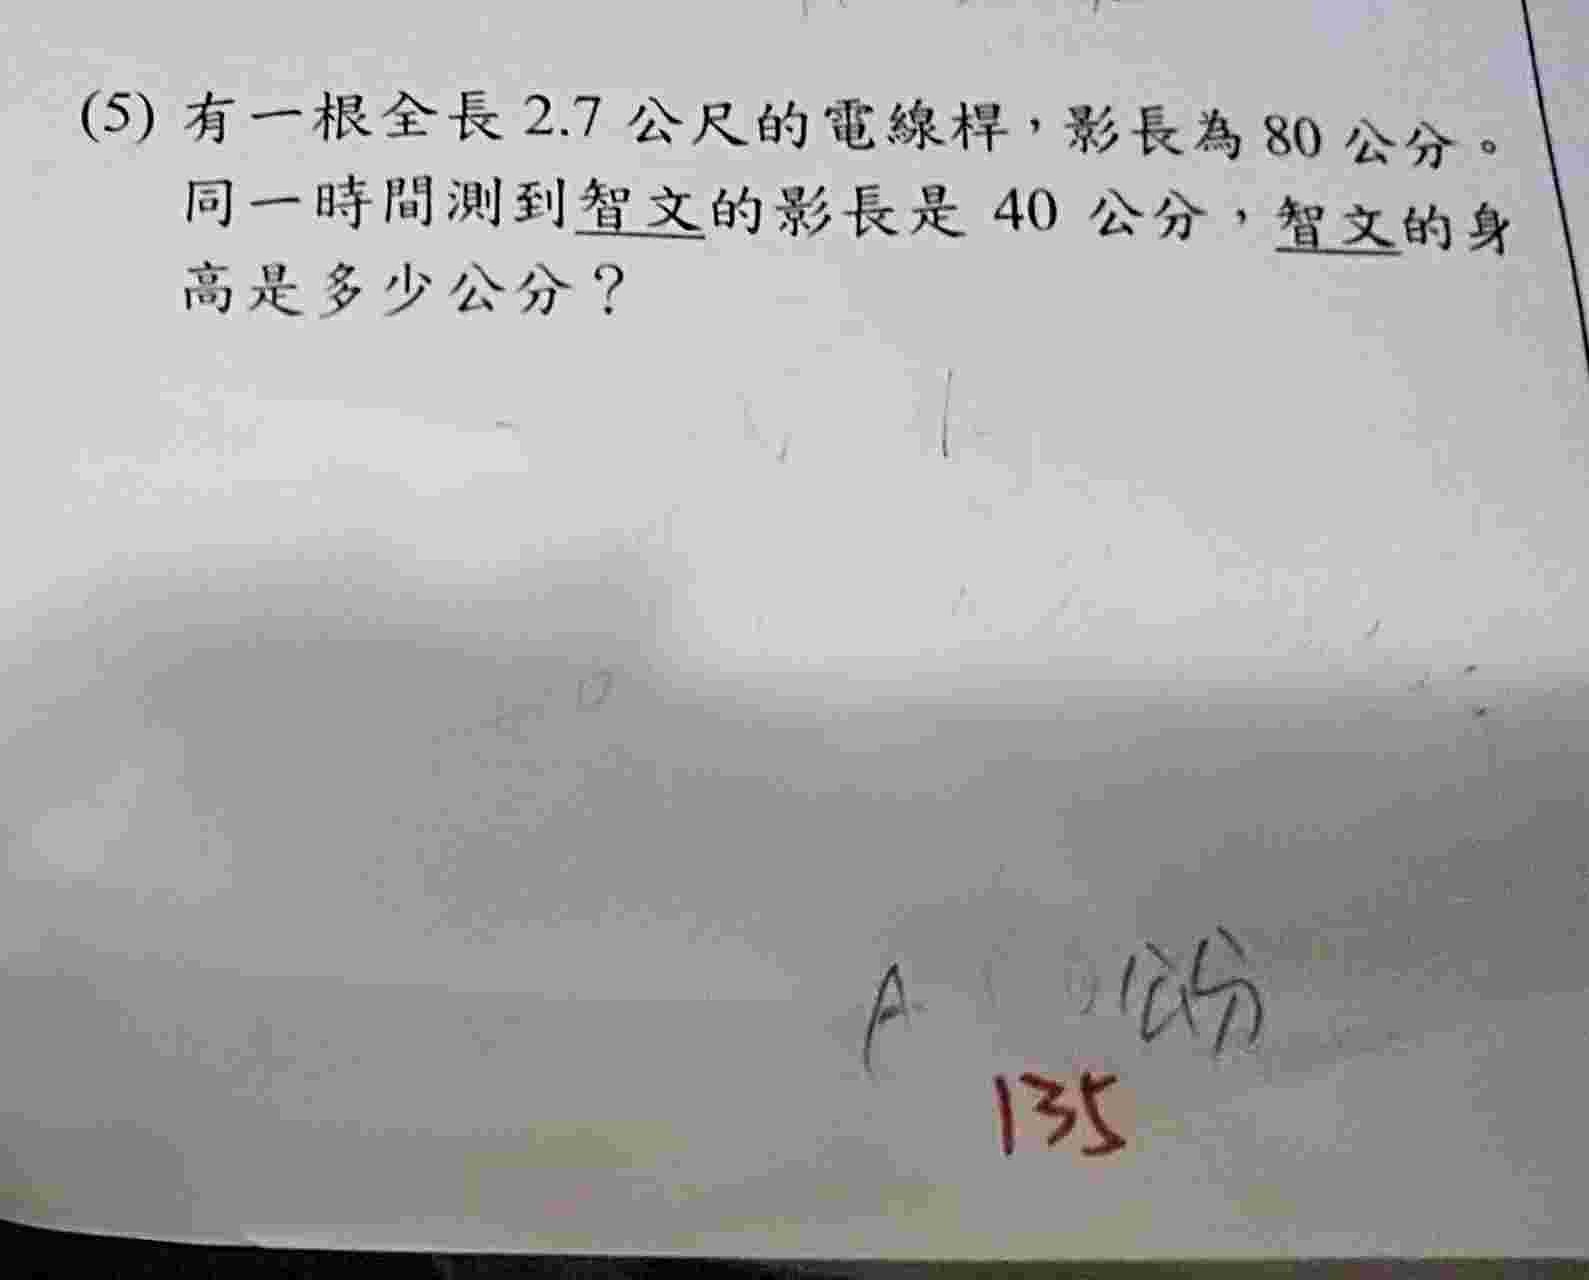 (5) 有一根全長 2.7 公尺的電線桿，影長為 80 公分。
同一時間測到智文的影長是 40 公分，智文的身
高是多少公分？
A. 公分
135